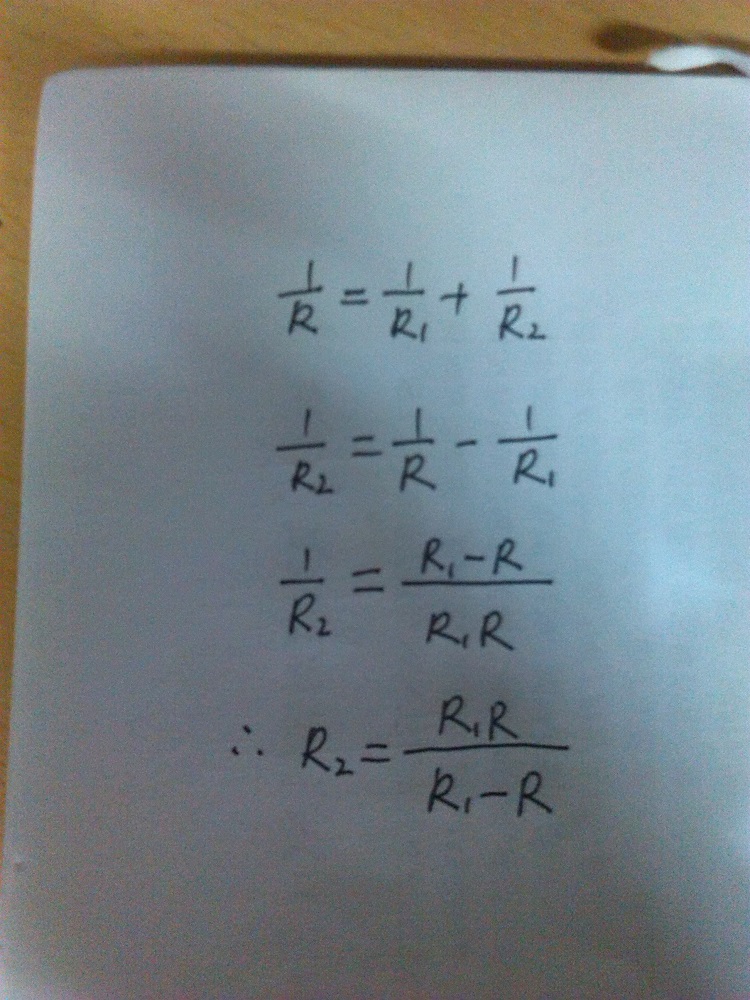 1/R = 1/R₁ + 1/R₂
1/R₂ = 1/R - 1/R₁
1/R₂ = (R₁-R)/(R₁R)
∴ R₂ = (R₁R)/(R₁-R)